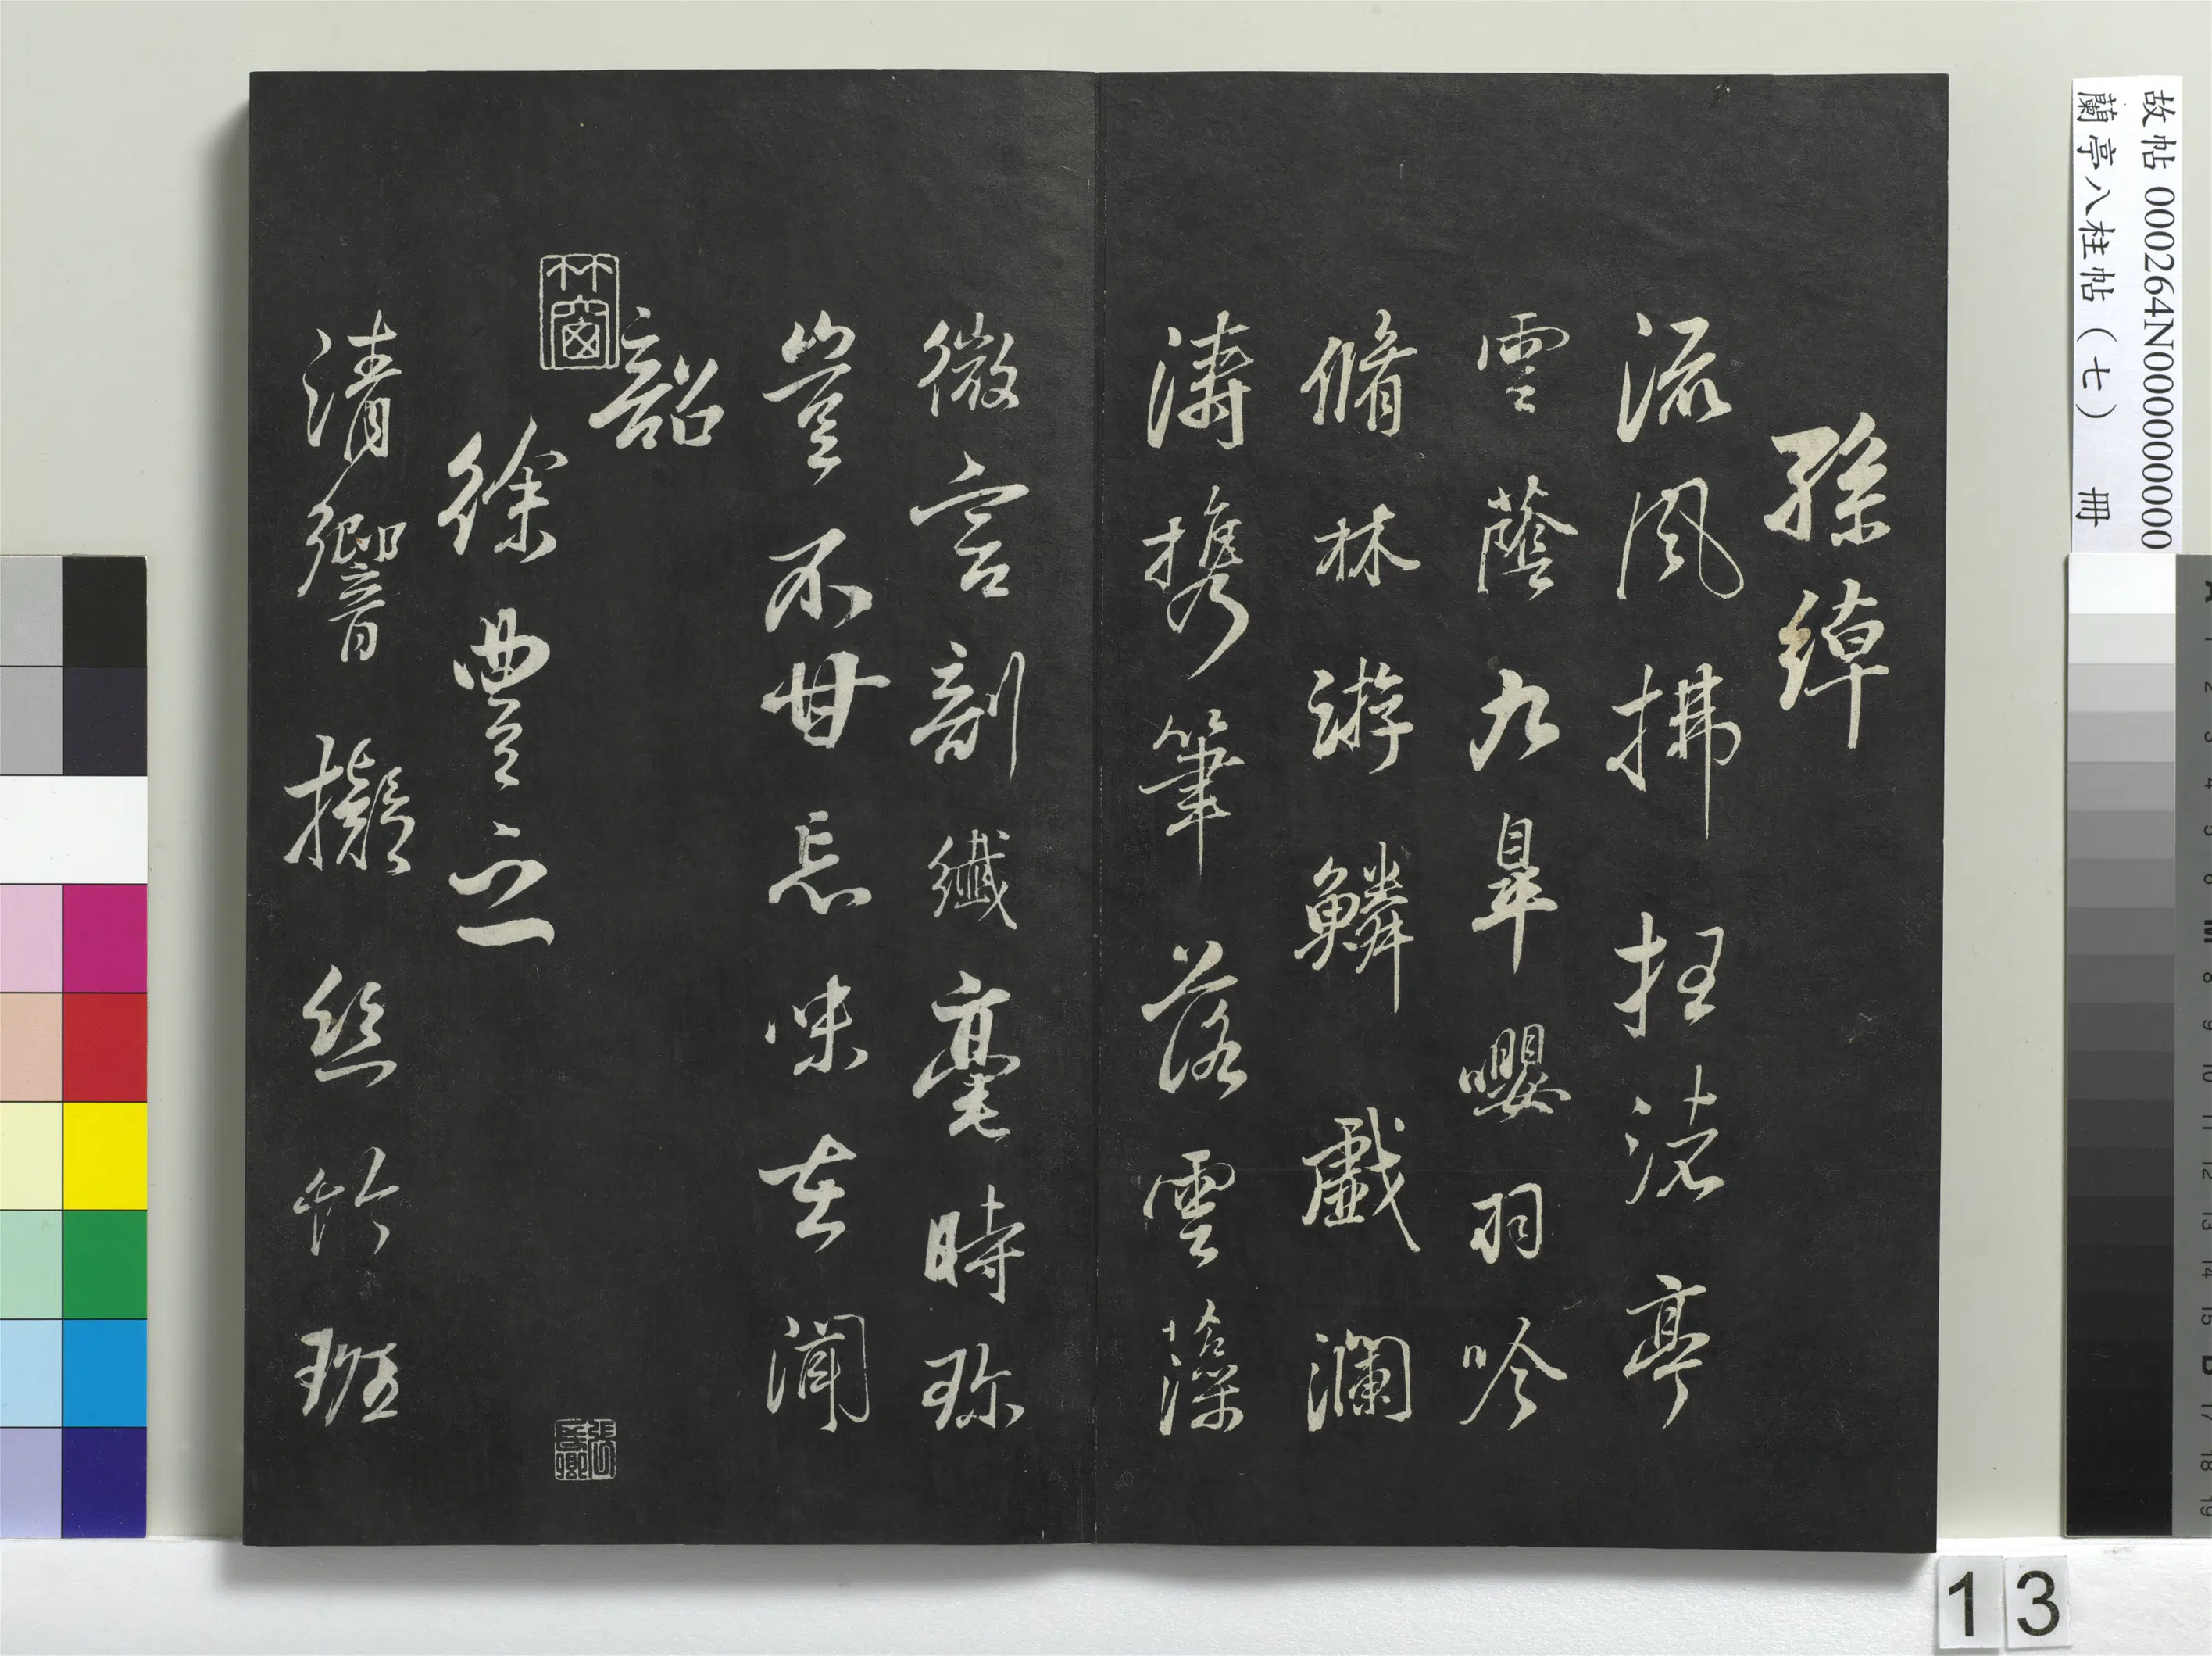 孫綽
流風拂枉渚亭
雲蔭九皐嚶羽吟
脩林游鱗戲瀾
濤携筆落雲藻
微言剖纖毫時珎
豈不甘忘味在聞
韶
徐豐之
清響擬絲竹班
竹窗
故帖 000264N000000000
蘭亭八柱帖（七） 冊
13